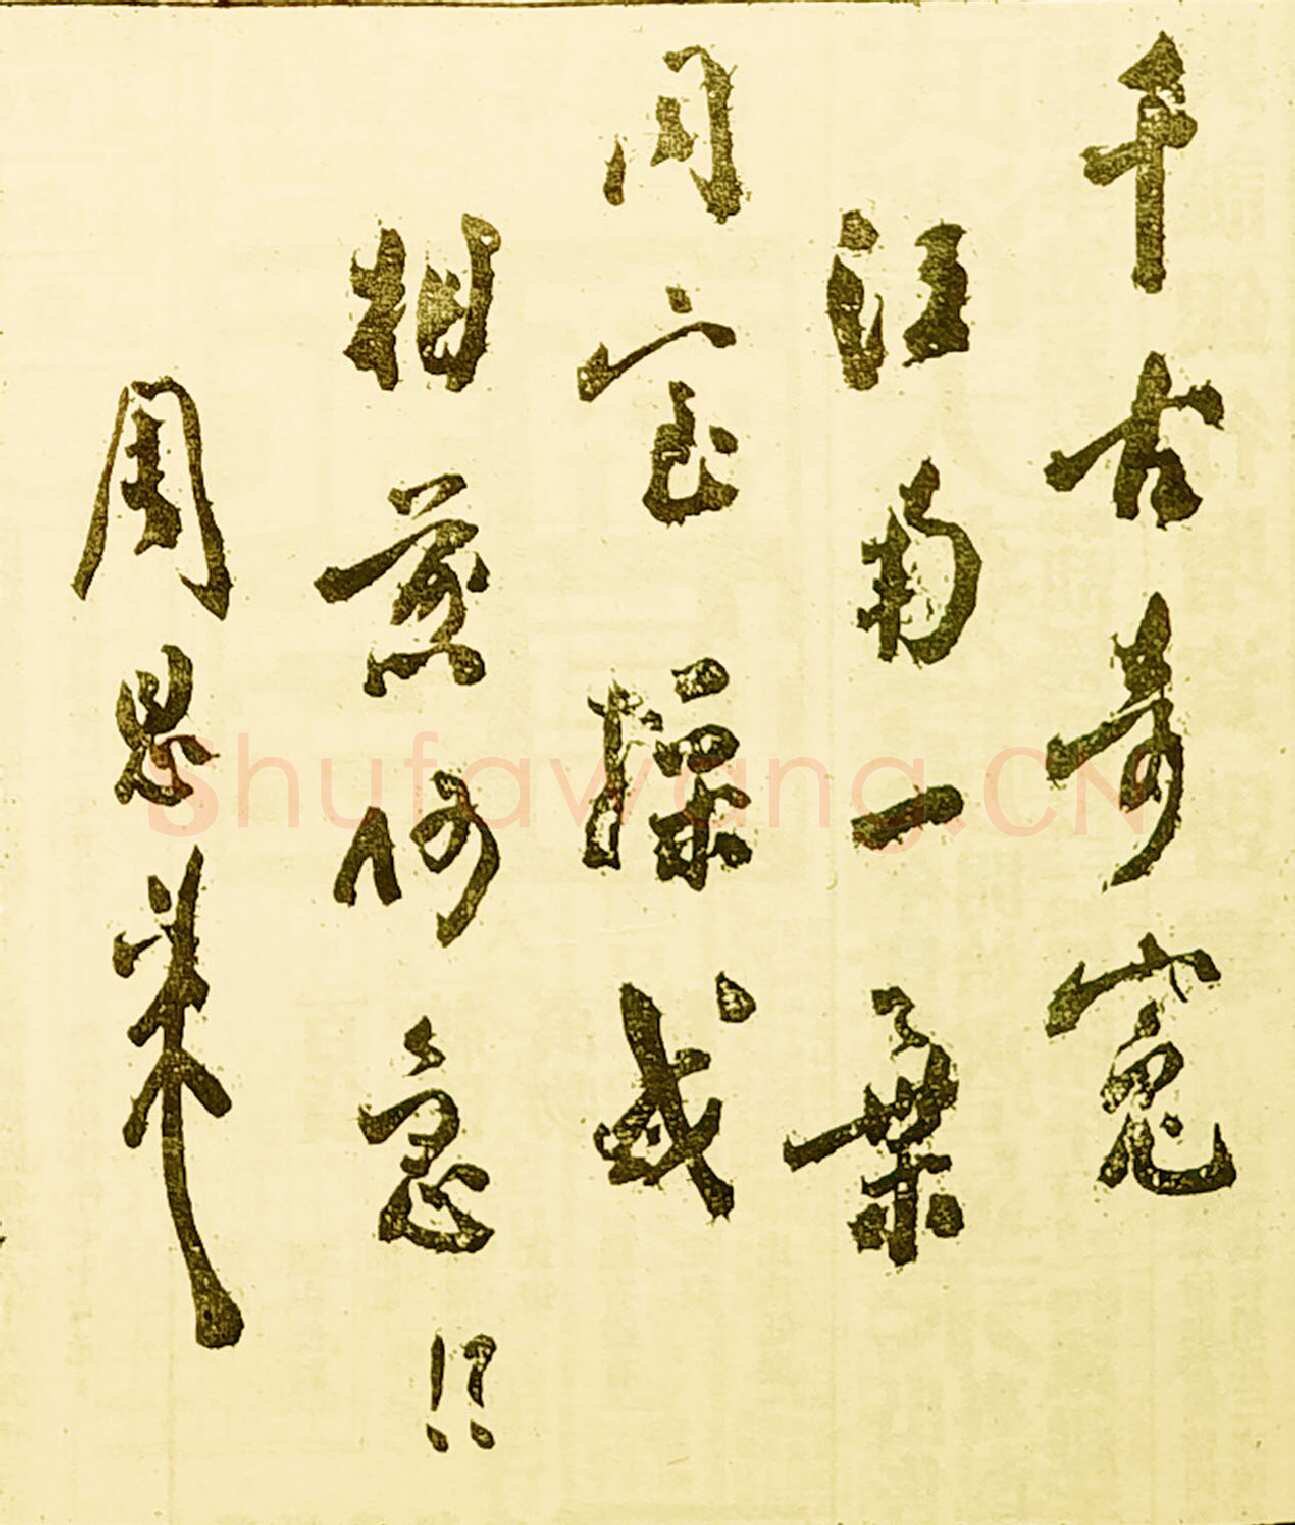 千古奇寃
江南一葉
同室操戈
相煎何急?!
周恩來
shufawang.CN